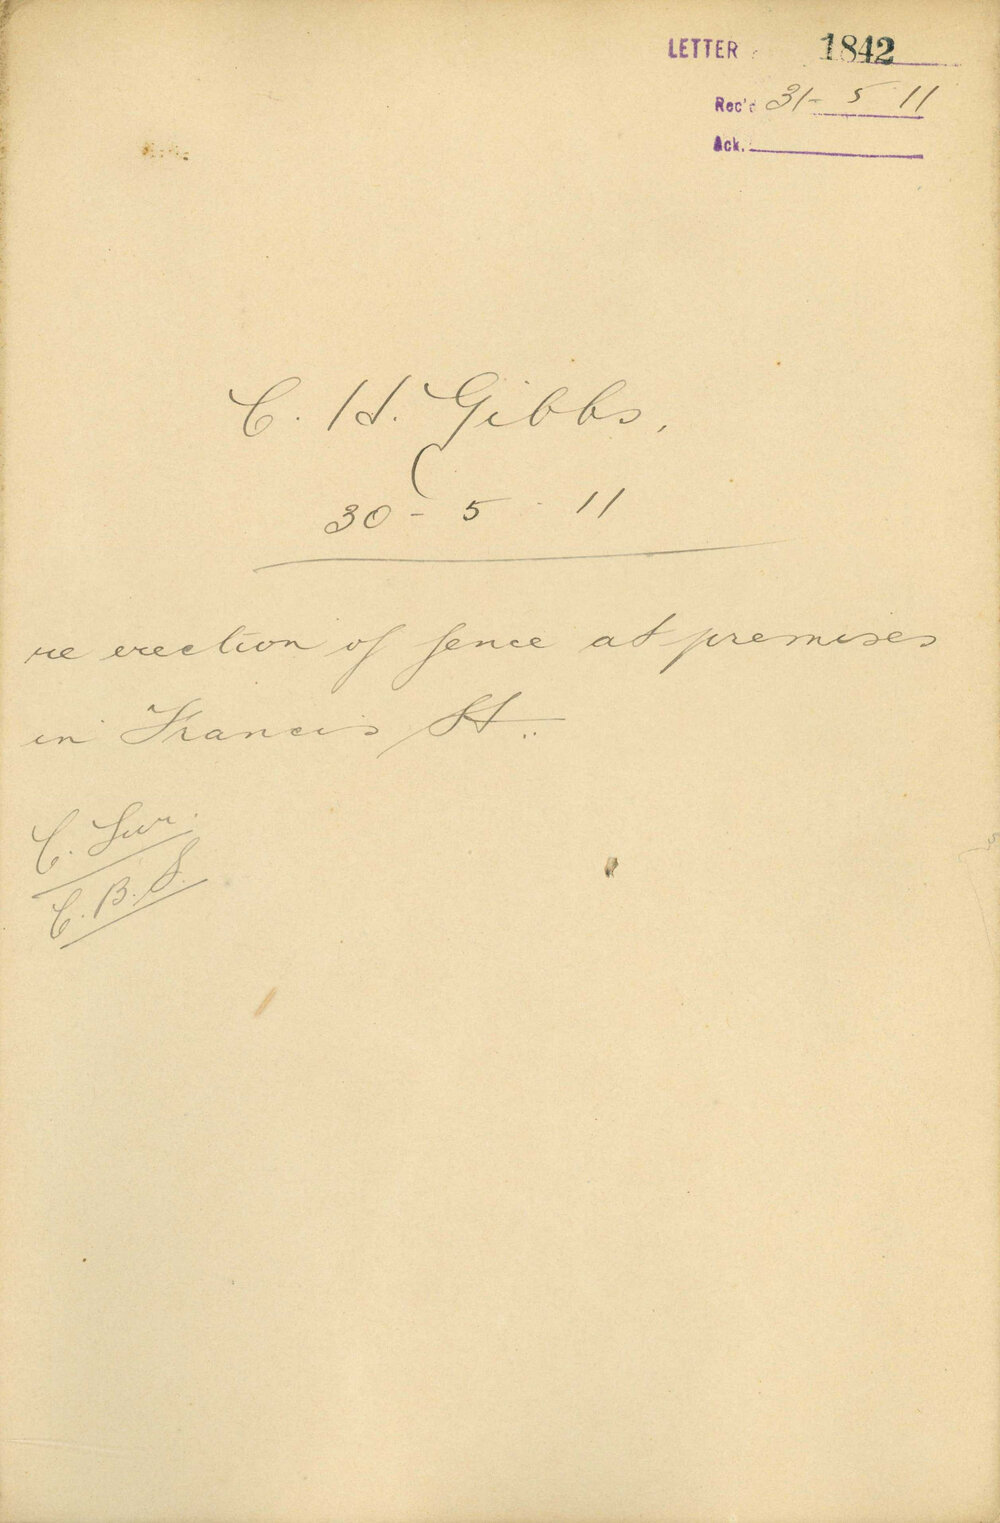 LETTER 1842
Rec'd 31-5 11
Ack.
C. H. Gibbs,
30-5-11
re erection of fence at premises
in Francis St..
C. Sur.
C. B. S.